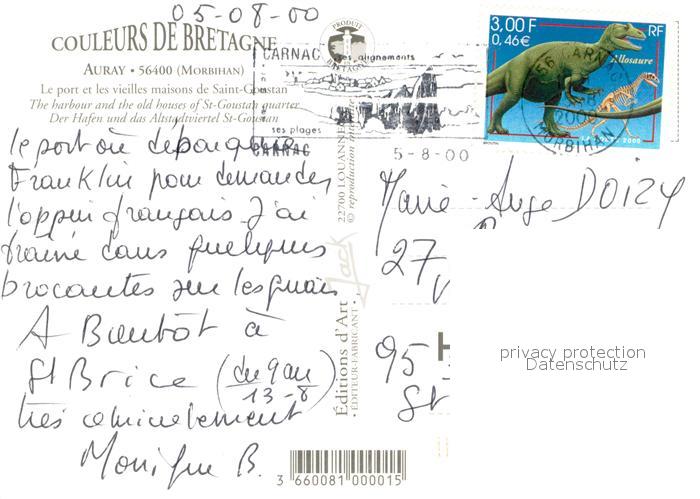 05-08-00
COULEURS DE BRETAGNE
AURAY • 56400 (MORBIHAN)
Le port et les vieilles maisons de Saint-Goustan
The harbour and the old houses of St-Goustan quarter
Der Hafen und das Altstadtviertel St-Goustan
le port où débarqua
Franklin pour demander
l'appui français. J'ai
traîné dans quelques
brocantes sur les quais
A Bientôt à
St Brice (du 9 au
13-8)
très amicalement
Monique B.
PRODUIT
BRETAGNE
CARNAC ses alignements
ses plages
CARNAC
5-8-00
56 CARNAC
MORBIHAN
3,00 F
0,46€
RF
Allosaure
2000
22700 LOUANNEC
© reproduction
Jack
Editions d'Art
ÉDITEUR-FABRICANT
3 660081 000015
Marie-Ange DOIZY
27,
95
St
privacy protection
Datenschutz